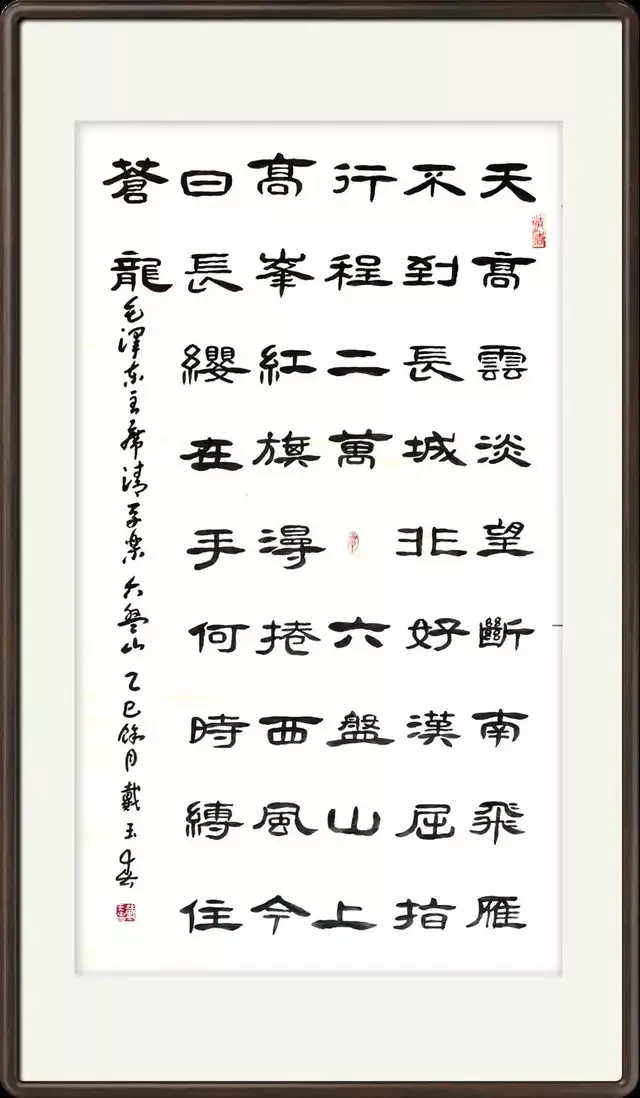 天高雲淡望斷南飛雁
不到長城非好漢屈指
行程二萬六盤山上
高峯紅旗漫捲西風今
日長纓在手何時縛住
蒼龍
毛澤东主席清平樂六盤山乙巳餘月戴玉春